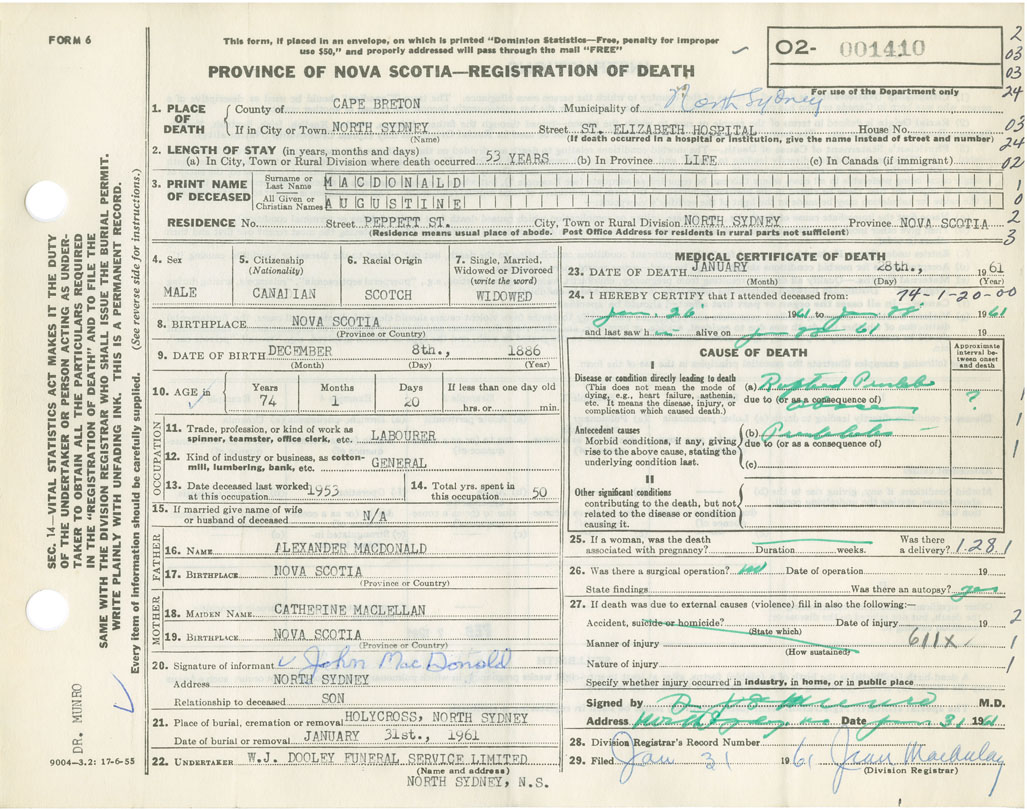 FORM 6
This form, if placed in an envelope, on which is printed "Dominion Statistics—Free, penalty for improper
use $50," and properly addressed will pass through the mail "FREE"
PROVINCE OF NOVA SCOTIA—REGISTRATION OF DEATH
02- 001410
For use of the Department only
2
03
03
24
03
24
02
1
0
2
3
1. PLACE OF DEATH
County of CAPE BRETON Municipality of North Sydney
If in City or Town NORTH SYDNEY Street ST. ELIZABETH HOSPITAL House No.
(Name) (If death occurred in a hospital or institution, give the name instead of street and number)
2. LENGTH OF STAY (in years, months and days)
(a) In City, Town or Rural Division where death occurred 53 YEARS (b) In Province LIFE (c) In Canada (if immigrant)
3. PRINT NAME OF DECEASED
Surname or Last Name MACDONALD
All Given or Christian Names AUGUSTINE
RESIDENCE No. Street PEPPETT ST. City, Town or Rural Division NORTH SYDNEY Province NOVA SCOTIA
(Residence means usual place of abode. Post Office Address for residents in rural parts not sufficient)
4. Sex
MALE
5. Citizenship
(Nationality)
CANADIAN
6. Racial Origin
SCOTCH
7. Single, Married,
Widowed or Divorced
(write the word)
WIDOWED
8. BIRTHPLACE NOVA SCOTIA
(Province or Country)
9. DATE OF BIRTH DECEMBER 8th., 1886
(Month) (Day) (Year)
10. AGE in
Years Months Days If less than one day old
74 1 20 hrs. or min.
OCCUPATION
11. Trade, profession, or kind of work as
spinner, teamster, office clerk, etc. LABOURER
12. Kind of industry or business, as cotton-
mill, lumbering, bank, etc. GENERAL
13. Date deceased last worked
at this occupation 1953
14. Total yrs. spent in
this occupation 50
15. If married give name of wife
or husband of deceased N/A
FATHER
16. NAME ALEXANDER MACDONALD
17. BIRTHPLACE NOVA SCOTIA
(Province or Country)
MOTHER
18. MAIDEN NAME CATHERINE MACLELLAN
19. BIRTHPLACE NOVA SCOTIA
(Province or Country)
20. Signature of informant John MacDonald
Address NORTH SYDNEY
Relationship to deceased SON
21. Place of burial, cremation or removal HOLYCROSS, NORTH SYDNEY
Date of burial or removal JANUARY 31st., 1961
22. UNDERTAKER W.J. DOOLEY FUNERAL SERVICE LIMITED
(Name and address)
NORTH SYDNEY, N.S.
MEDICAL CERTIFICATE OF DEATH
23. DATE OF DEATH JANUARY 28th., 1961
(Month) (Day) (Year)
24. I HEREBY CERTIFY that I attended deceased from: 74-1-20-00
Jan. 26 1961 to Jan 28 1961
and last saw h alive on Jan 28 61 19
CAUSE OF DEATH
Approximate
interval be-
tween onset
and death
I
Disease or condition directly leading to death
(This does not mean the mode of
dying, e.g., heart failure, asthenia,
etc. It means the disease, injury, or
complication which caused death.)
(a) Ruptured
due to (or as a consequence of)
?
Antecedent causes
Morbid conditions, if any, giving
rise to the above cause, stating the
underlying condition last.
(b)
due to (or as a consequence of)
(c)
1
1
1
II
Other significant conditions
contributing to the death, but not
related to the disease or condition
causing it.
25. If a woman, was the death
associated with pregnancy? Duration weeks. Was there
a delivery? 1281
26. Was there a surgical operation? no Date of operation 19
State findings Was there an autopsy? yes
27. If death was due to external causes (violence) fill in also the following:—
Accident, suicide or homicide? Date of injury 19
(State which)
Manner of injury 611X
(How sustained)
Nature of injury
2
1
1
Specify whether injury occurred in industry, in home, or in public place
Signed by Munro M.D.
Address North Sydney, Date Jan 31 1961
28. Division Registrar's Record Number
29. Filed Jan 31 1961 Jean Macaulay
(Division Registrar)
SEC. 14—VITAL STATISTICS ACT MAKES IT THE DUTY
OF THE UNDERTAKER OR PERSON ACTING AS UNDER-
TAKER TO OBTAIN ALL THE PARTICULARS REQUIRED
IN THE "REGISTRATION OF DEATH" AND TO FILE THE
SAME WITH THE DIVISION REGISTRAR WHO SHALL ISSUE THE BURIAL PERMIT.
WRITE PLAINLY WITH UNFADING INK. THIS IS A PERMANENT RECORD.
Every item of information should be carefully supplied. (See reverse side for instructions.)
DR. MUNRO
9004—3.2: 17-6-55